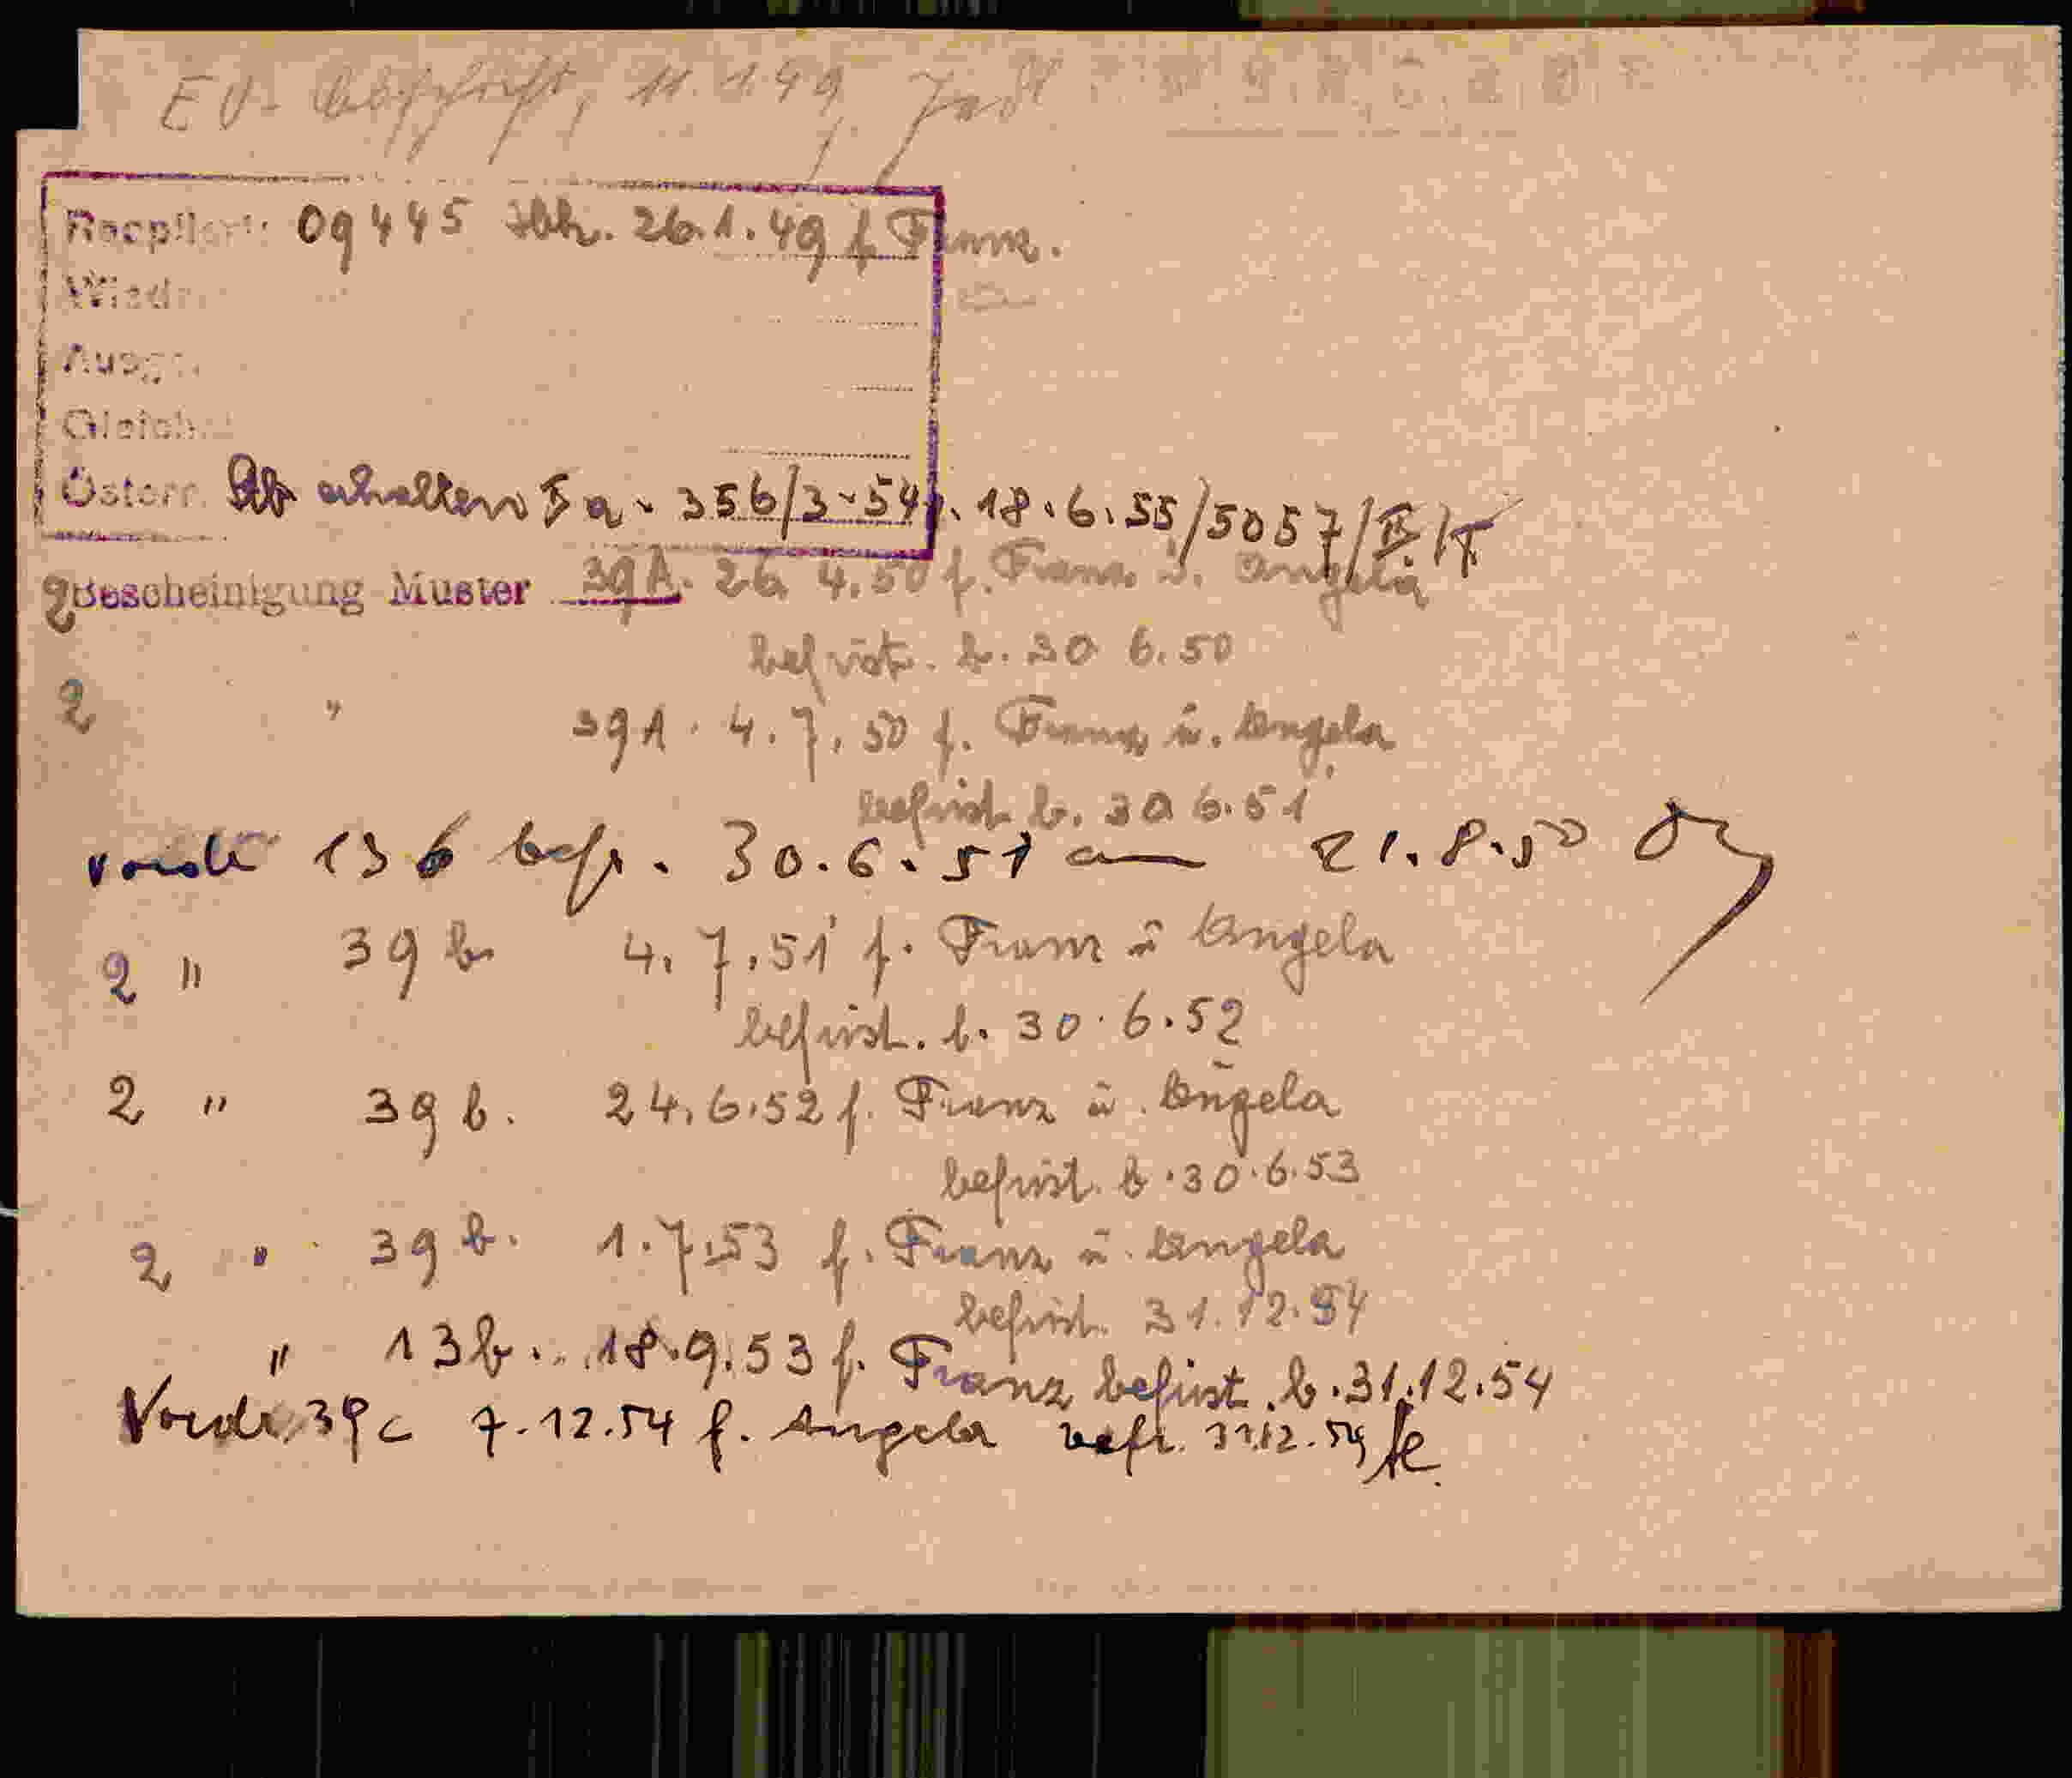 EV- Abschrift, 11.1.49
Rückseite
09445 26.1.49 f. Franz.
Wiedr.
Ausg.
Österr. erhalten a. 356/3-54 v. 18.6.55/5057/II/
2 Bescheinigung Muster 39A. 26. 4.50 f. Franz u. Angela
befrist. b. 30 6.50
2 " 39A. 4.7.50 f. Franz u. Angela
befrist. b. 30 6.51
13 b befr. 30.6.51 am 21.8.50
2 " 39 b. 4.7.51 f. Franz u Angela
befrist. b. 30.6.52
2 " 39 b. 24.6.52 f. Franz u. Angela
befrist. b. 30.6.53
2 " 39 b. 1.7.53 f. Franz u. Angela
befrist. 31.12.54
" 13b. 18.9.53 f. Franz befrist. b. 31.12.54
Vordr. 39c 7.12.54 f. Angela befr. 31.12.59